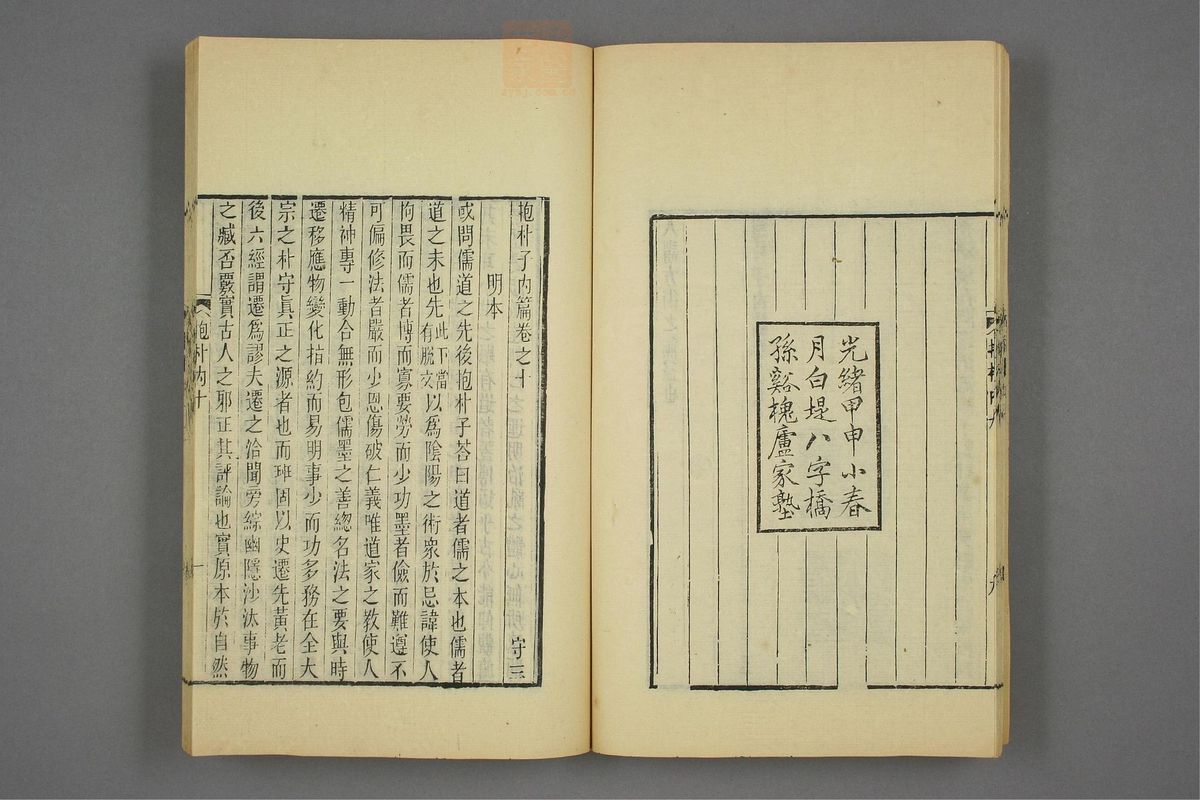 光緒甲申小春
月白堤八字橋
孫谿槐廬家塾
抱朴子內篇卷之十　守三
明本
或問儒道之先後抱朴子荅曰道者儒之本也儒者
道之末也先此下當有脫文以爲陰陽之術衆於忌諱使人
拘畏而儒者博而寡要勞而少功墨者儉而難遵不
可偏修法者嚴而少恩傷破仁義唯道家之教使人
精神專一動合無形包儒墨之善緫名法之要與時
遷移應物變化指約而易明事少而功多務在全大
宗之朴守眞正之源者也而班固以史遷先黃老而
後六經謂遷爲謬夫遷之洽聞旁綜幽隱沙汰事物
之臧否覈實古人之邪正其評論也實原本於自然
抱朴內十
一